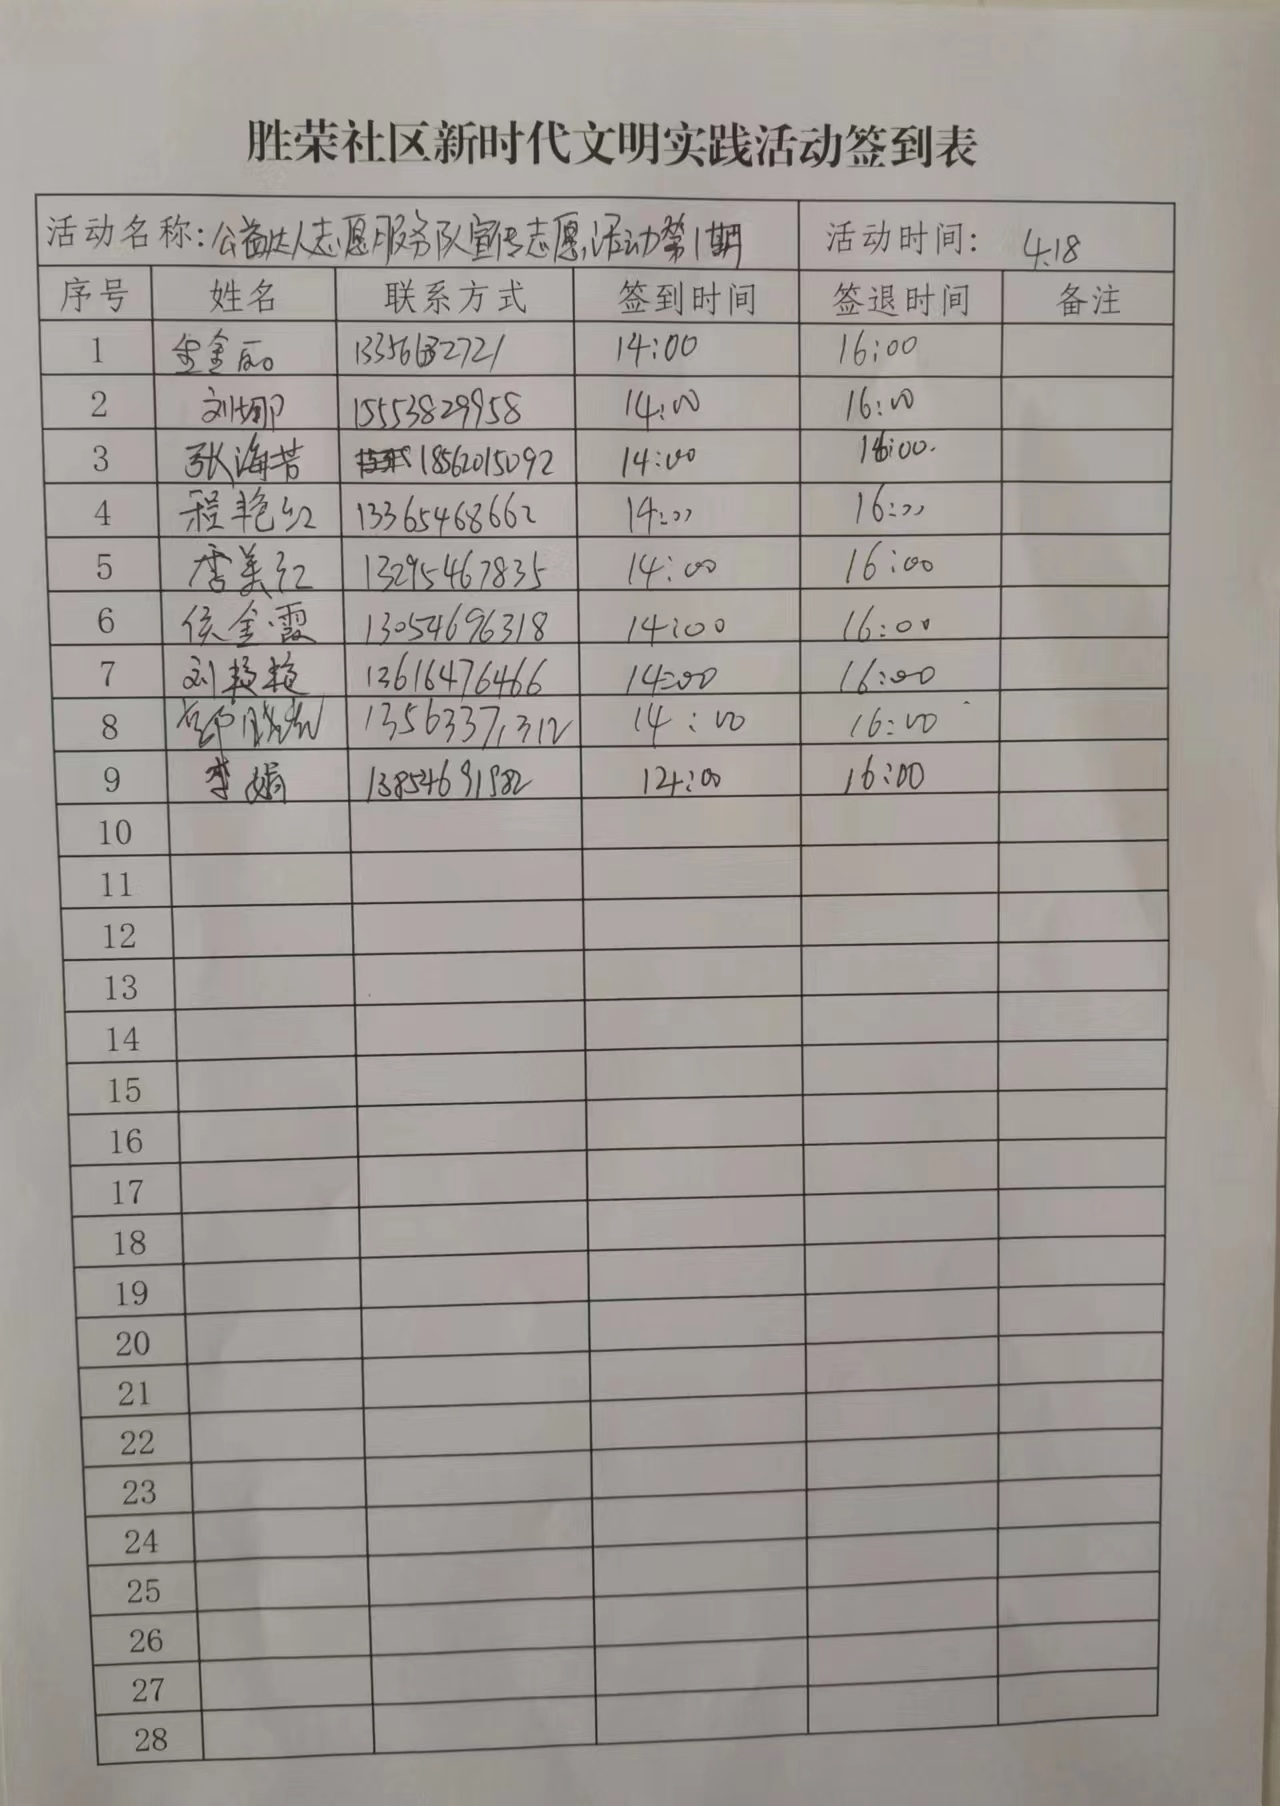 胜荣社区新时代文明实践活动签到表
活动名称:公益达人志愿服务队宣传志愿活动第1期 活动时间: 4.18
序号 姓名 联系方式 签到时间 签退时间 备注
1 金丽 14:00 16:00
2 刘娜 15553829958 14:00 16:00
3 张海芳 18562015092 14:00 16:00.
4 程艳红 13365468662 14:00 16:00
5 唐美红 13295467835 14:00 16:00
6 侯金霞 13054696318 14:00 16:00
7 刘艳艳 13616476466 14:00 16:00
8 13563371312 14:00 16:00
9 李娟 13854691982 14:00 16:00
10
11
12
13
14
15
16
17
18
19
20
21
22
23
24
25
26
27
28